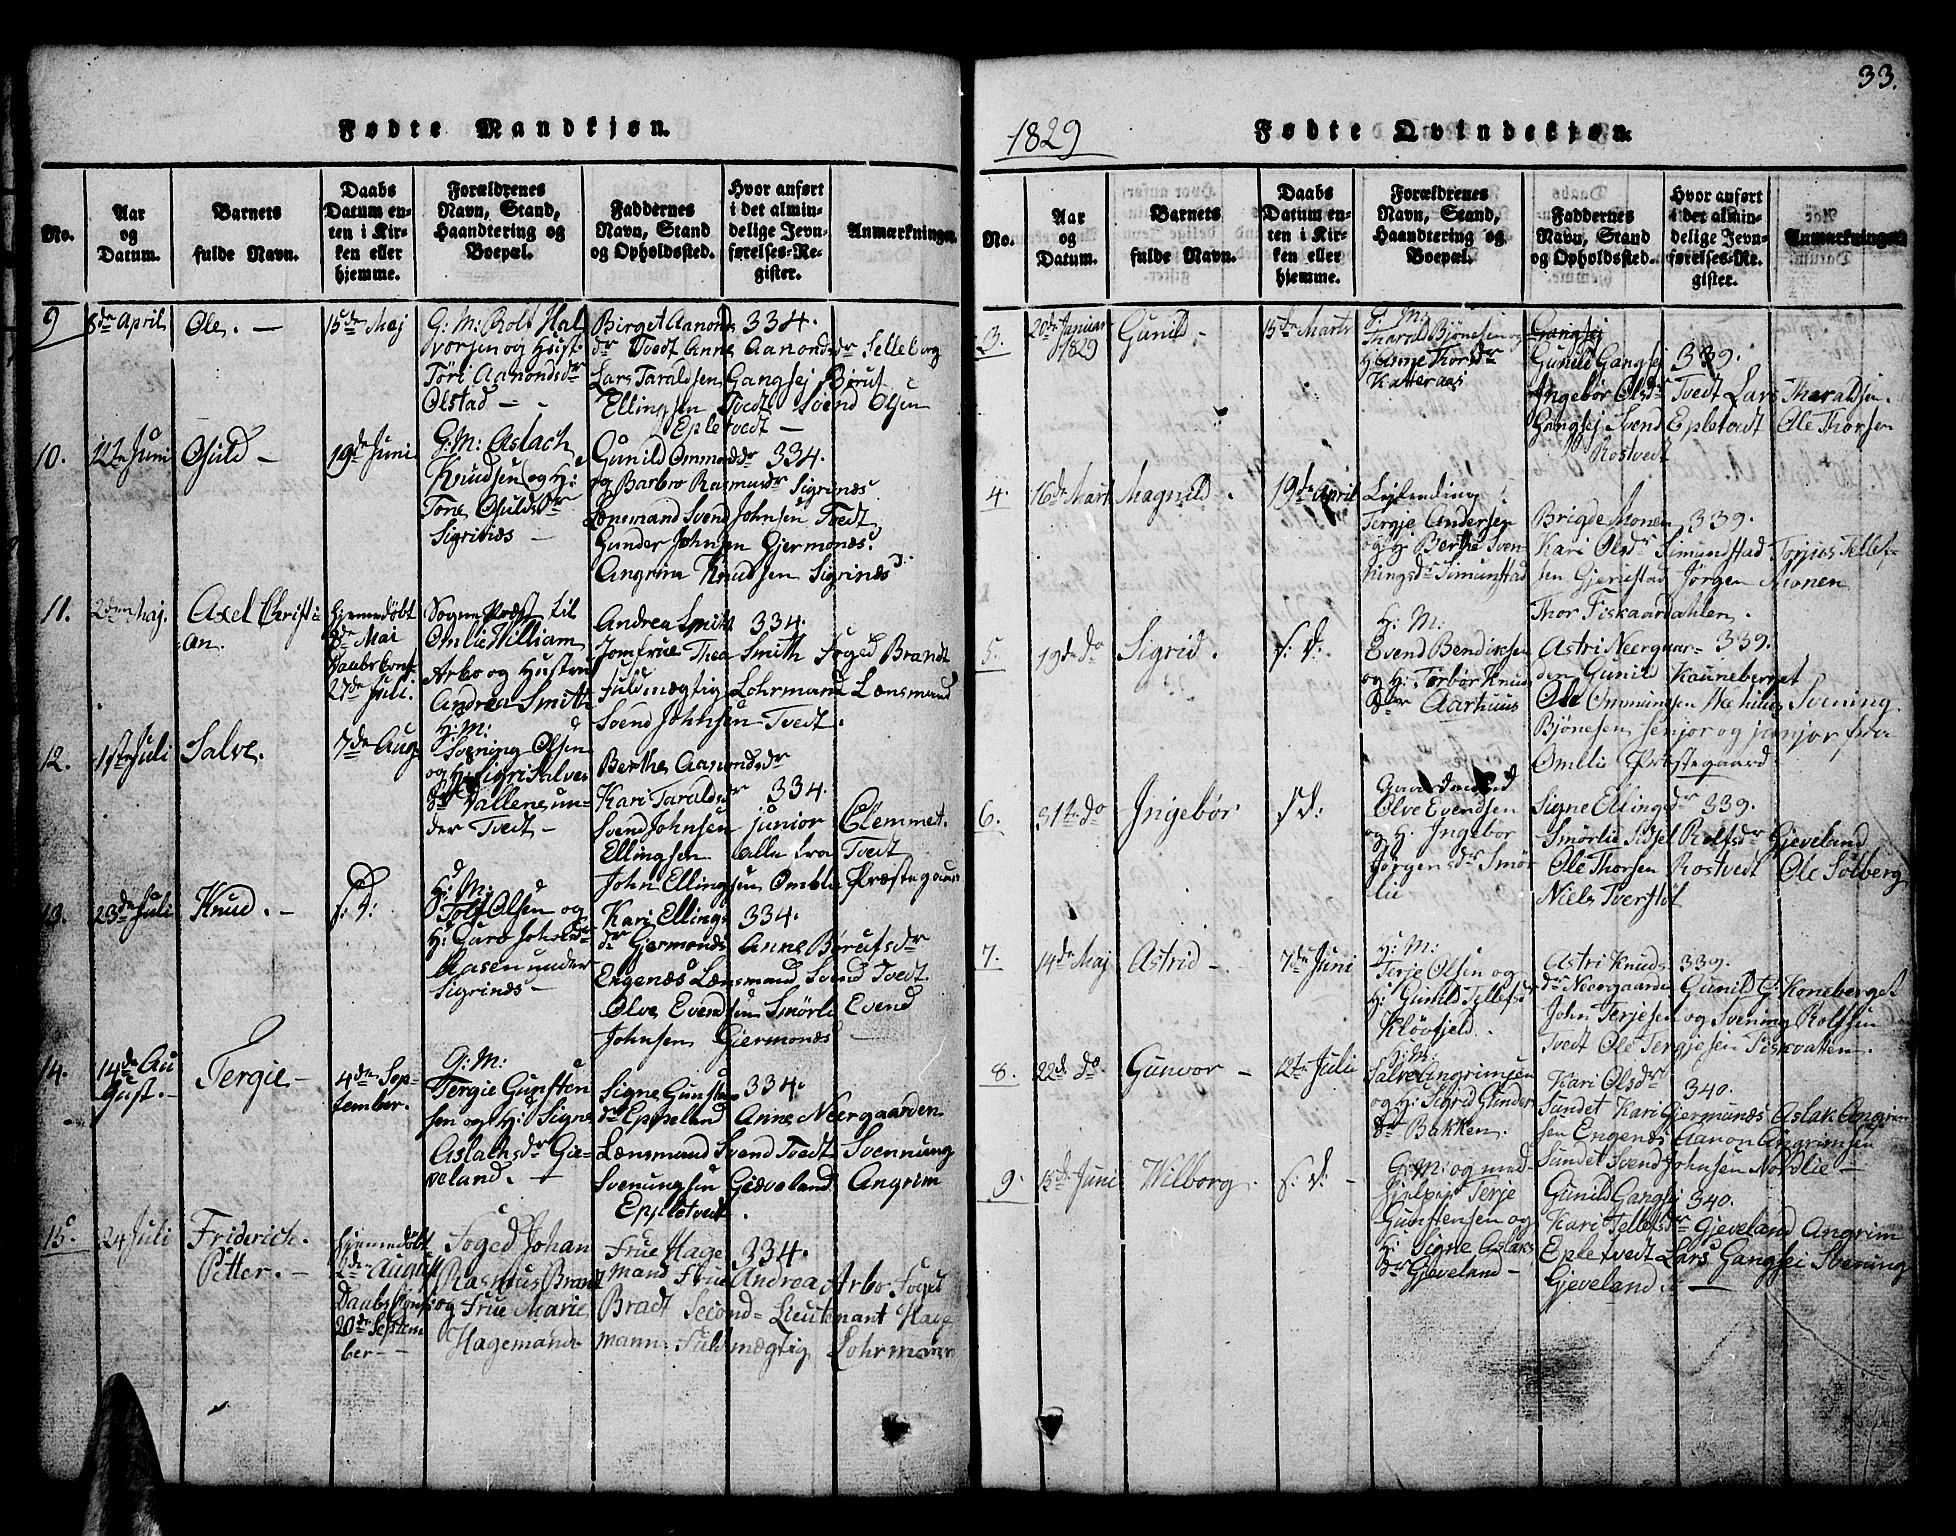 Fødte Mandkjøn.
No.
Aar
og
Datum.
Barnets
fulde Navn.
Daabs
Datum en-
ten i Kir-
ken eller
hjemme.
Forældrenes
Navn, Stand,
Haandtering og
Boepæl.
Faddernes
Navn, Stand
og Opholdssted.
Hvor anført
i det almin-
delige Jevn-
førelses-Re-
gister.
Anmærkninger.
9
8de April
Ole. —
15de Maj
G: M: Rolf Hal
vorsen og Hust.
Töri Aanondsdr
Olstad — -
Birget Aanons 334.
dr Tvedt Anne Aanondsdr Selleberg
Lars Taraldsen Gangsej Börut
Ellingsen Tvedt Svend Olsen
Epletvedt —
10.
12te Juni
Osuld —
19de Juni
G: M: Aslach
Knudsen og H:
Tone Osuldsdr
Sigrinæs —
Gunild Ommundsdr 334.
og Barbro Rasmusdr Sigrinæs
Lænsmand Svend Johnsen Tvedt
Gunder Johnsen Gjermonæs.
Angrim Knudsen Sigrinæs
11.
2den Maj.
Axel Christi-
an.
hjemmedöbt
8de Mai
Daabs Conf.
27de Juli.
Sogne Præst til
Omlie William
Arbo og Hustru
Andrea Smith
Andrea Smith 334.
Jomfrue Thea Smith Foged Brandt
Fuldmægtig Lohrmand Lænsmand
Svend Johnsen Tvedt.
12.
1ste Juli
Salve.
7de Aug
H: M:
Svening Olsen
og H: Sigri Salves
dr Vallene un-
der Tvedt —
Berthe Aanondsdr
Kari Taraldsdr 334.
Svend Johnsen junior Clemmet
Ellingsen alle fra Tvedt
John Ellingsen Omblie Præstegaard
13.
23de Juli
Knud. —
s: D:
H: M:
Tolf Olsen og
H: Guro Johnsdr
Aasen under
Sigrinæs —
Kari Ellings 334.
dr Gjermonæs Anne Börufsdr
Engenæs Lænsmand Svend Tvedt
Olve Evendsen Smörli Evend
Johnsen Gjermonæs —
14.
14de Au
gust. —
Tergie —
4de Sep-
tember.
G: M:
Tergie Gunsten
sen og H: Signe
Aslachsdr Gie-
veland. —
Signe Gunstens 334.
dr Eppeland Anne Neergaarden
Lænsmand Svend Tvedt Svennung
Svenungsen Giæveland Angrim
Eppletvedt.
15.
24 Juli
Friderich
Petter. —
hjemmedöbt
2de August
Daabs Conf
20de Septem
ber —
Foged Johan
Rasmus Brandt
og Frue Marie
Hagemand
Frue Hage 334.
mand Frue Andrea Arbo Foget
Bradt Second-Lieutenant Hage
mann Fuldmægtig Lohrmann
33.
1829
Fødte Qvindekjøn.
No.
Aar
og
Datum.
Barnets
fulde Navn.
Daabs
Datum en-
ten i Kir-
ken eller
hjemme.
Forældrenes
Navn, Stand,
Haandtering og
Boepæl.
Faddernes
Navn, Stand
og Opholdssted.
Hvor anført
i det almin-
delige Jevn-
førelses-Re-
gister.
Anmærkninger.
3.
20de Januar
1829
Gunild —
15de Marts
G: M:
Tharald Bjönesen og
H: Anne Thorsdr
Katteraas
Gangsej
Gunild Gangsej 339.
Ingebör Olsdr Tvedt Lars Tharaldsen.
Gangsej Svend Epletvedt Ole Thorsen
Rostvedt
4.
16de Mart
Magnild.
19de April
Lejlending
Tergje Andersen
og H: Berthe Sven
ningsdr Simunstad
Brigde Monen 339.
Kari Olsdr Simunstad Torjus Tellef-
sen Gjeriestad Jörgen Monen
Thor Fiskaardahlen.
5.
19de do
Sigrid.
s: d:
H: M:
Evend Bendiksen
og H: Torbör Knud
dr Aarhuus
Astri Neergaar= 339.
den Gunild Kauneberget
Ole Ommundsen Svening
Bjönesen senjor og junjor fra
Omlie Præstegaard
6.
31te do
Ingebör
s d:
Gaardmand
Olve Evendsen
og H: Ingebör
Jörgensdr Smör
lie
Signe Ellingsdr 339.
Smörlie Sidsel Rolfsdr Gjeveland
Ole Thorsen Rostvedt Ole Solberg
Niels Tverstöl
7.
14de Maj
Astrid —
7de Juni
H: M:
Terje Olsen og
H: Gunild Tellefsdr
Klövfjeld.
Astri Knuds 339.
dr Neergaarden Gunild G: Koneberget
John Terjesen og Svening Rolfsen
Tvedt Ole Tergjesen Fiskvatten.
8.
22d. do.
Gunvor —
12te Juli
G: M:
Salve Angrimsen
og H: Sigrid Gunder
dr Bakken.
Kari Olsdr 340.
Sundet Kari Gjermunæs Aslak Angrim
sen Engenæs Aanon Angrimsen
Sundet Svend Johnsen Nordlie —
9.
15de Juni
Wilborg.
s: d: -
G: M: og med-
hjelper Terje
Gunstensen og
H: Signe Aslaks
dr Gjeveland —
Gunild Gangsej 340.
Kari Tellefsdr Gjeveland Angrim
Epletvedt Lars Gangsei Svening
Gjeveland. —